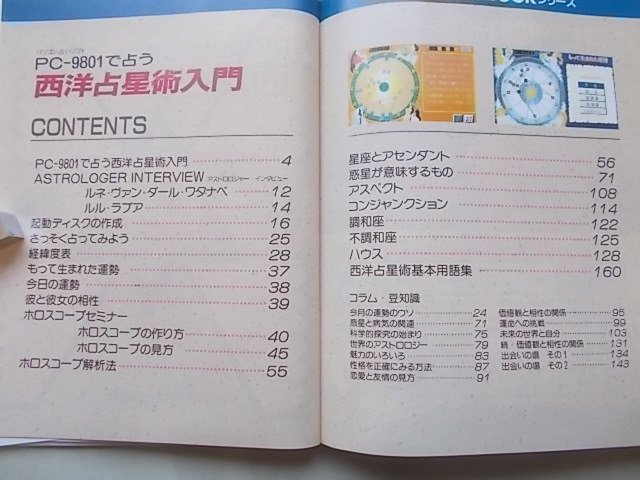 パソコン占いソフト
PC-9801で占う
西洋占星術入門
CONTENTS
PC-9801で占う西洋占星術入門 4
ASTROLOGER INTERVIEW アストロロジャー・インタビュー
ルネ・ヴァン・ダール・ワタナベ 12
ルル・ラブア 14
起動ディスクの作成 16
さっそく占ってみよう 25
経緯度表 28
もって生まれた運勢 37
今日の運勢 38
彼と彼女の相性 39
ホロスコープセミナー
ホロスコープの作り方 40
ホロスコープの見方 45
ホロスコープ解析法 55
シリーズ
もって生まれた運勢
星座とアセンダント 56
惑星が意味するもの 71
アスペクト 108
コンジャンクション 114
調和座 122
不調和座 125
ハウス 128
西洋占星術基本用語集 160
コラム・豆知識
今月の運勢のウソ 24
惑星と病気の関連 71
科学的探究の始まり 75
世界のアストロロジー 79
魅力のいろいろ 83
性格を正確にみる方法 87
恋愛と友情の見方 91
価値観と相性の関係 95
運命への挑戦 99
未来の世界と自分 103
続・価値観と相性の関係 131
出会いの場 その1 134
出会いの場 その2 143